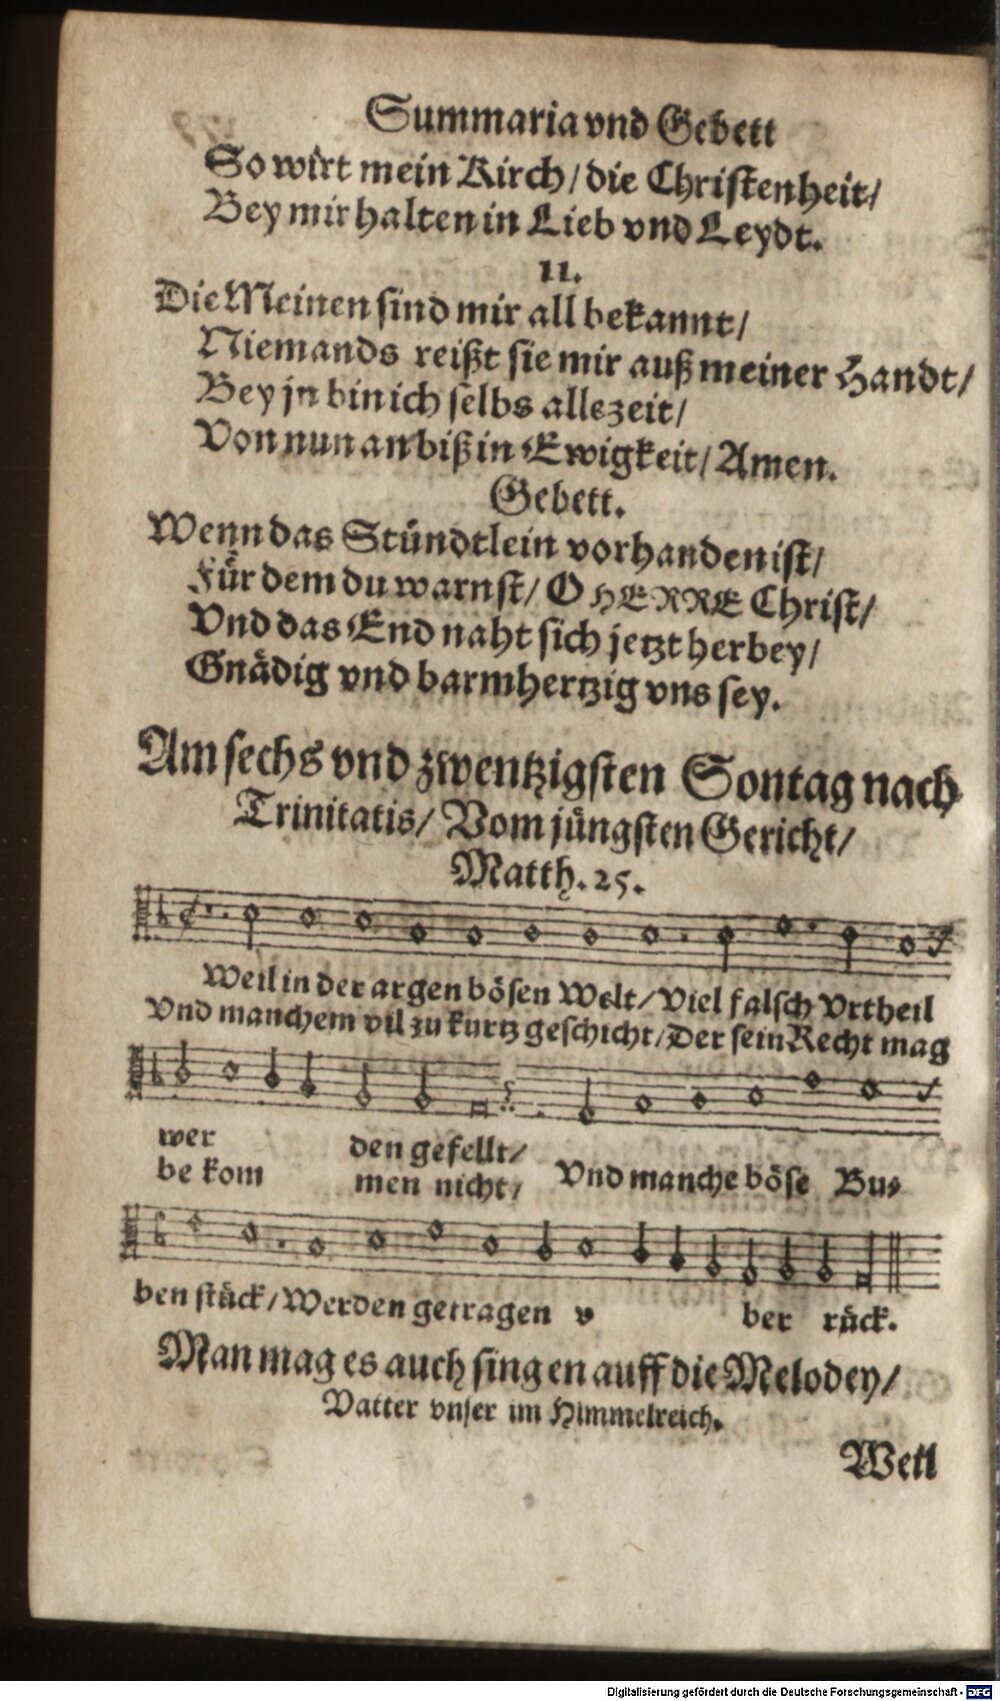 Summaria vnd Gebett
So wirt mein Kirch / die Christenheit /
Bey mir halten in Lieb vnd Leydt.
11.
Die Meinen sind mir all bekannt /
Niemands reißt sie mir auß meiner Handt /
Bey jn bin ich selbs allezeit /
Von nun an biß in Ewigkeit / Amen.
Gebett.
Wenn das Stündtlein vorhanden ist /
Für dem du warnst / O HERRE Christ /
Vnd das End naht sich jetzt herbey /
Gnädig vnd barmhertzig vns sey.
Am sechs vnd zwentzigsten Sontag nach
Trinitatis / Vom jüngsten Gericht /
Matth. 25.
Weil in der argen bösen Welt / Viel falsch Vrtheil
Vnd manchem vil zu kurtz geschicht / Der sein Recht mag
wer den gefellt /
be kom men nicht / Vnd manche böse Bu-
ben stück / Werden getragen v ber rück.
Man mag es auch singen auff die Melodey /
Vatter vnser im Himmelreich.
Weil
Digitalisierung gefördert durch die Deutsche Forschungsgemeinschaft - DFG